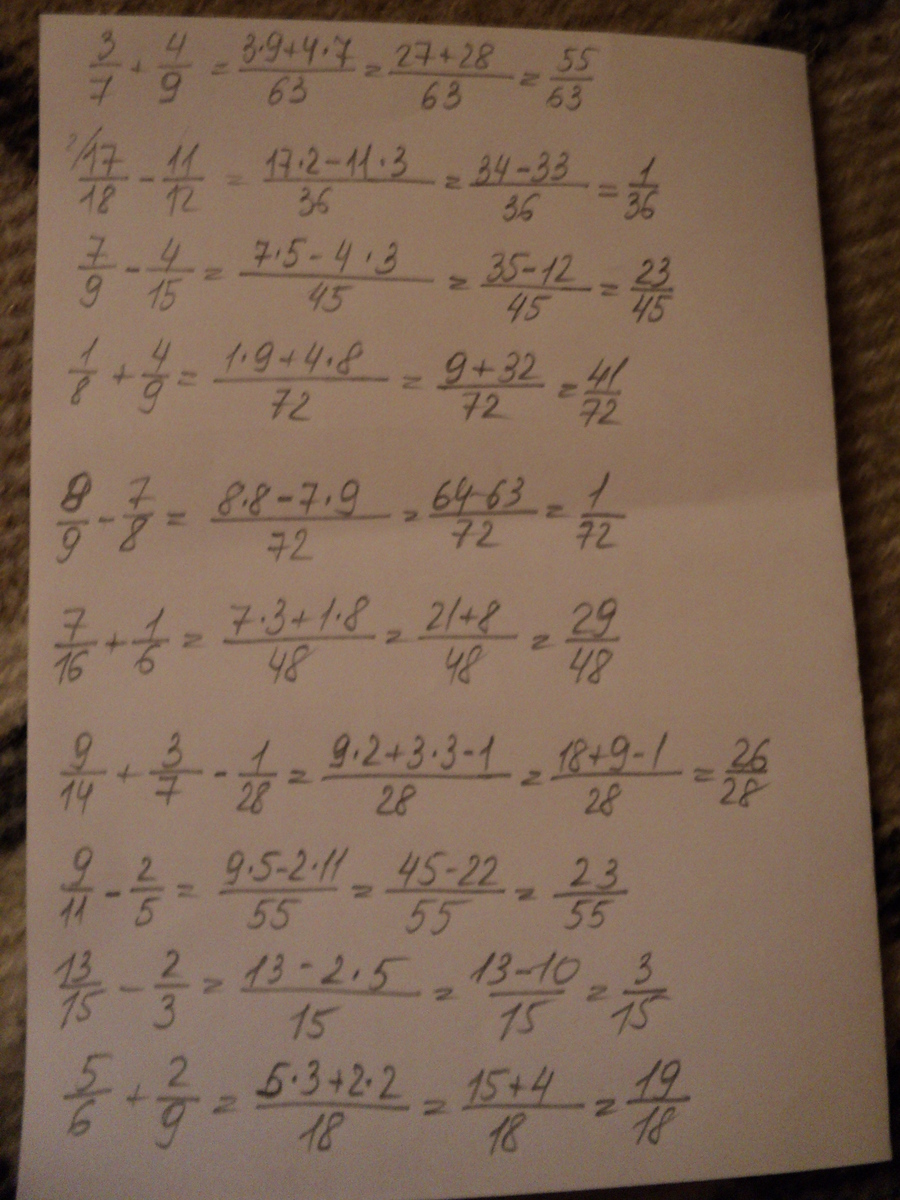 3/7 + 4/9 = (3·9+4·7)/63 = (27+28)/63 = 55/63
2/ 17/18 - 11/12 = (17·2-11·3)/36 = (34-33)/36 = 1/36
7/9 - 4/15 = (7·5-4·3)/45 = (35-12)/45 = 23/45
1/8 + 4/9 = (1·9+4·8)/72 = (9+32)/72 = 41/72
8/9 - 7/8 = (8·8-7·9)/72 = (64-63)/72 = 1/72
7/16 + 1/6 = (7·3+1·8)/48 = (21+8)/48 = 29/48
9/14 + 3/7 - 1/28 = (9·2+3·3-1)/28 = (18+9-1)/28 = 26/28
9/11 - 2/5 = (9·5-2·11)/55 = (45-22)/55 = 23/55
13/15 - 2/3 = (13-2·5)/15 = (13-10)/15 = 3/15
5/6 + 2/9 = (5·3+2·2)/18 = (15+4)/18 = 19/18